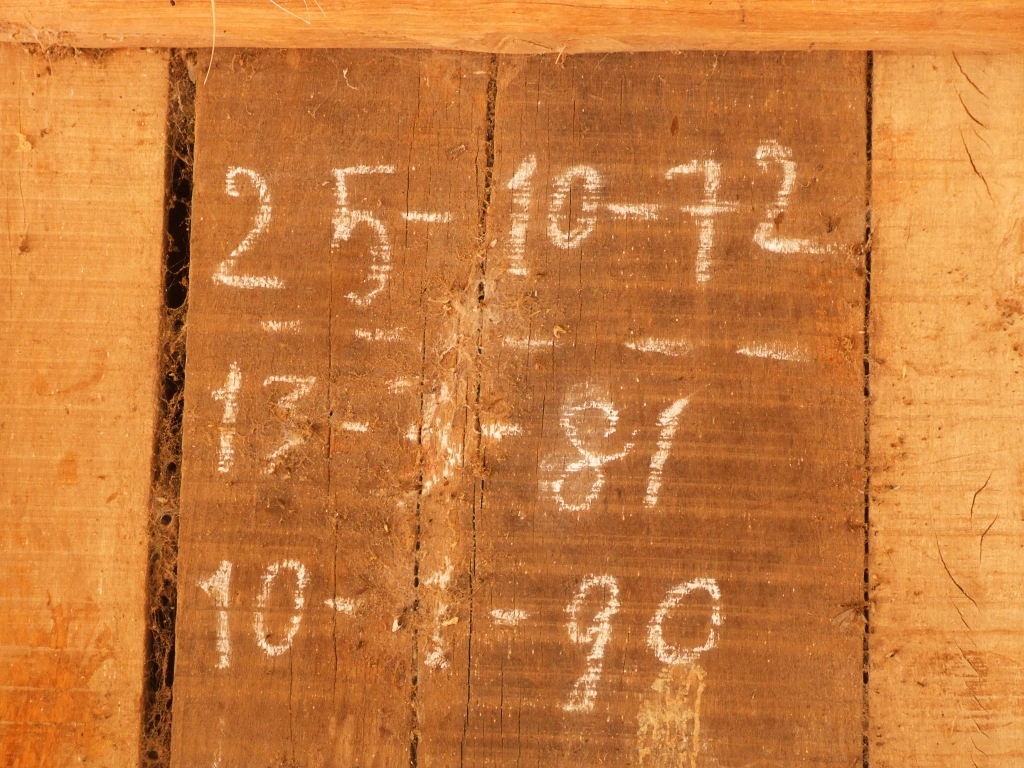 25-10-72
- - - - -
13-1-81
10-1-90